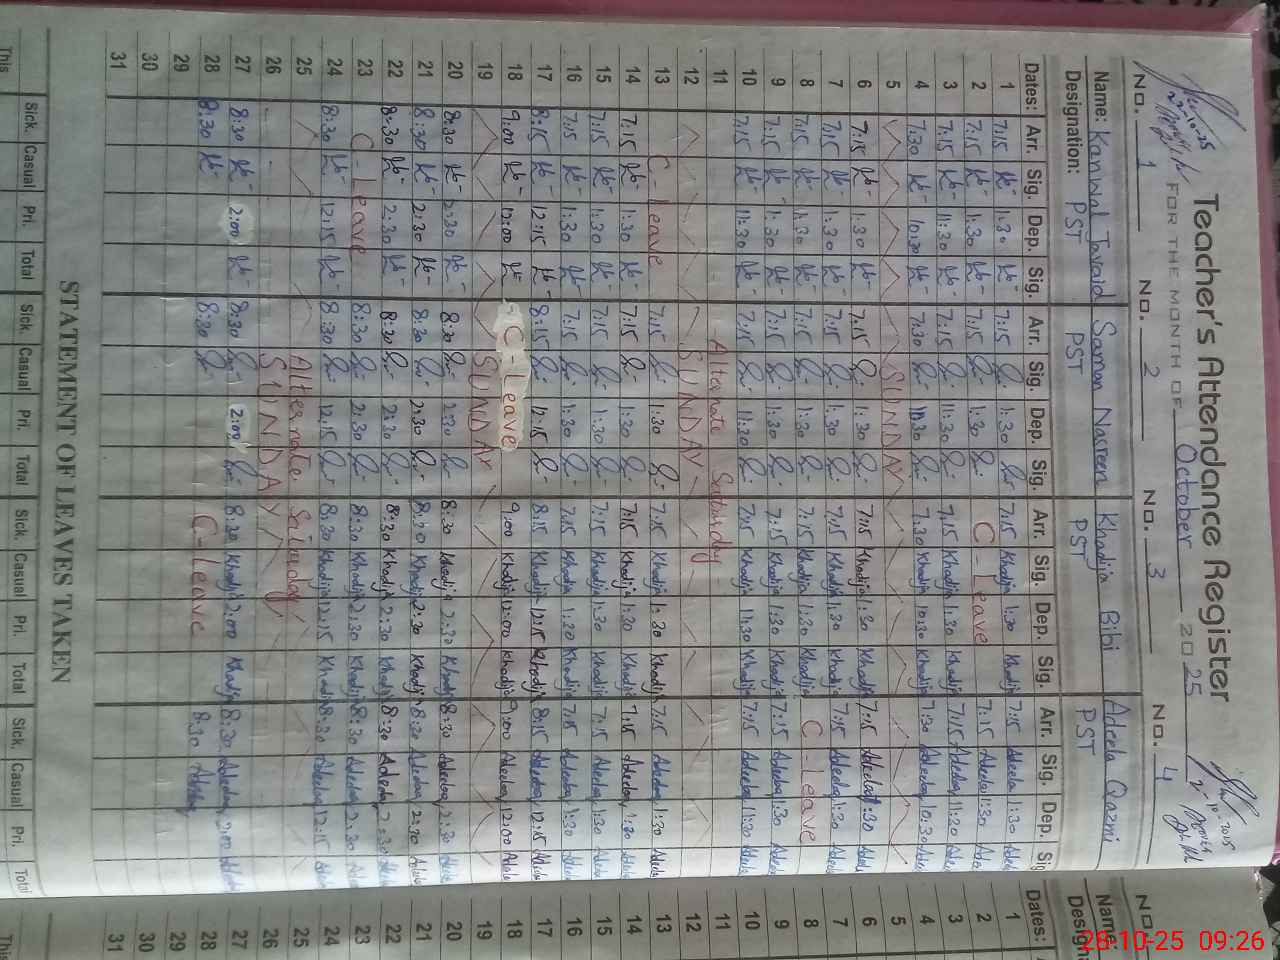 Teacher's Attendance Register
FOR THE MONTH OF October 2025
No. 1 No. 2 No. 3 No. 4
Name: Kanwal Javaid Saman Nasreen Khadija Bibi Adeela Qazmi
Designation: PST PST PST PST
Dates: Arr. Sig. Dep. Sig. Arr. Sig. Dep. Sig. Arr. Sig. Dep. Sig. Arr. Sig. Dep. Sig
1 7:15 1:30 7:15 1:30 7:15 Khadija 1:30 Khadija 7:15 Adeela 1:30
2 7:15 1:30 7:15 1:30 C - Leave 7:15 Adeela 1:30
3 7:15 11:30 7:15 11:30 7:15 Khadija 1:30 Khadija 7:15 Adeela 11:30
4 7:30 10:30 7:30 10:30 7:30 Khadija 10:30 Khadija 7:30 Adeela 10:30
5 SUNDAY
6 7:15 1:30 7:15 1:30 7:15 Khadija 1:30 Khadija 7:15 Adeela 1:30
7 7:15 1:30 7:15 1:30 7:15 Khadija 1:30 Khadija 7:15 Adeela 1:30
8 7:15 1:30 7:15 1:30 7:15 Khadija 1:30 Khadija C - Leave
9 7:15 1:30 7:15 1:30 7:15 Khadija 1:30 Khadija 7:15 Adeela 1:30
10 7:15 11:30 7:15 11:30 7:15 Khadija 11:30 Khadija 7:15 Adeela 11:30
11 Alternate Saturday
12 SUNDAY
13 C - Leave 7:15 1:30 7:15 Khadija 1:30 Khadija 7:15 Adeela 1:30
14 7:15 1:30 7:15 1:30 7:15 Khadija 1:30 Khadija 7:15 Adeela 1:30
15 7:15 1:30 7:15 1:30 7:15 Khadija 1:30 Khadija 7:15 Adeela 1:30
16 7:15 1:30 7:15 1:30 7:15 Khadija 1:30 Khadija 7:15 Adeela 1:30
17 8:15 12:15 8:15 12:15 8:15 Khadija 12:15 Khadija 8:15 Adeela 12:15
18 9:00 12:00 C - Leave 9:00 Khadija 12:00 Khadija 9:00 Adeela 12:00
19 SUNDAY
20 8:30 2:30 8:30 2:30 8:30 Khadija 2:30 Khadija 8:30 Adeela 2:30
21 8:30 2:30 8:30 2:30 8:30 Khadija 2:30 Khadija 8:30 Adeela 2:30
22 8:30 2:30 8:30 2:30 8:30 Khadija 2:30 Khadija 8:30 Adeela 2:30
23 C - Leave 8:30 2:30 8:30 Khadija 2:30 Khadija 8:30 Adeela 2:30
24 8:30 12:15 8:30 12:15 8:30 Khadija 12:15 Khadija 8:30 Adeela 12:15
25 Alternate Saturday
26 SUNDAY
27 8:30 2:00 8:30 2:00 8:30 Khadija 2:00 Khadija 8:30 Adeela 2:00
28 8:30 8:30 C - Leave 8:30 Adeela
29
30
31
STATEMENT OF LEAVES TAKEN
Sick. Casual Pri. Total Sick. Casual Pri. Total Sick. Casual Pri. Total Sick. Casual Pri. Total
This
No.
Name:
Dates:
1
2
3
4
5
6
7
8
9
10
11
12
13
14
15
16
17
18
19
20
21
22
23
24
25
26
27
28
29
30
31
This
28-10-25 09:26